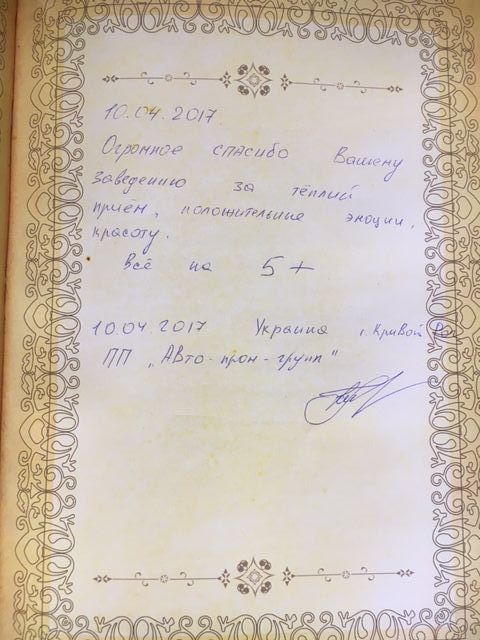 10.04.2017
Огромное спасибо Вашему
заведению за тёплый
приём, положительные эмоции,
красоту.
Всё на 5+
10.04.2017 Украина г. Кривой Рог
ПП „Авто-пром-групп"